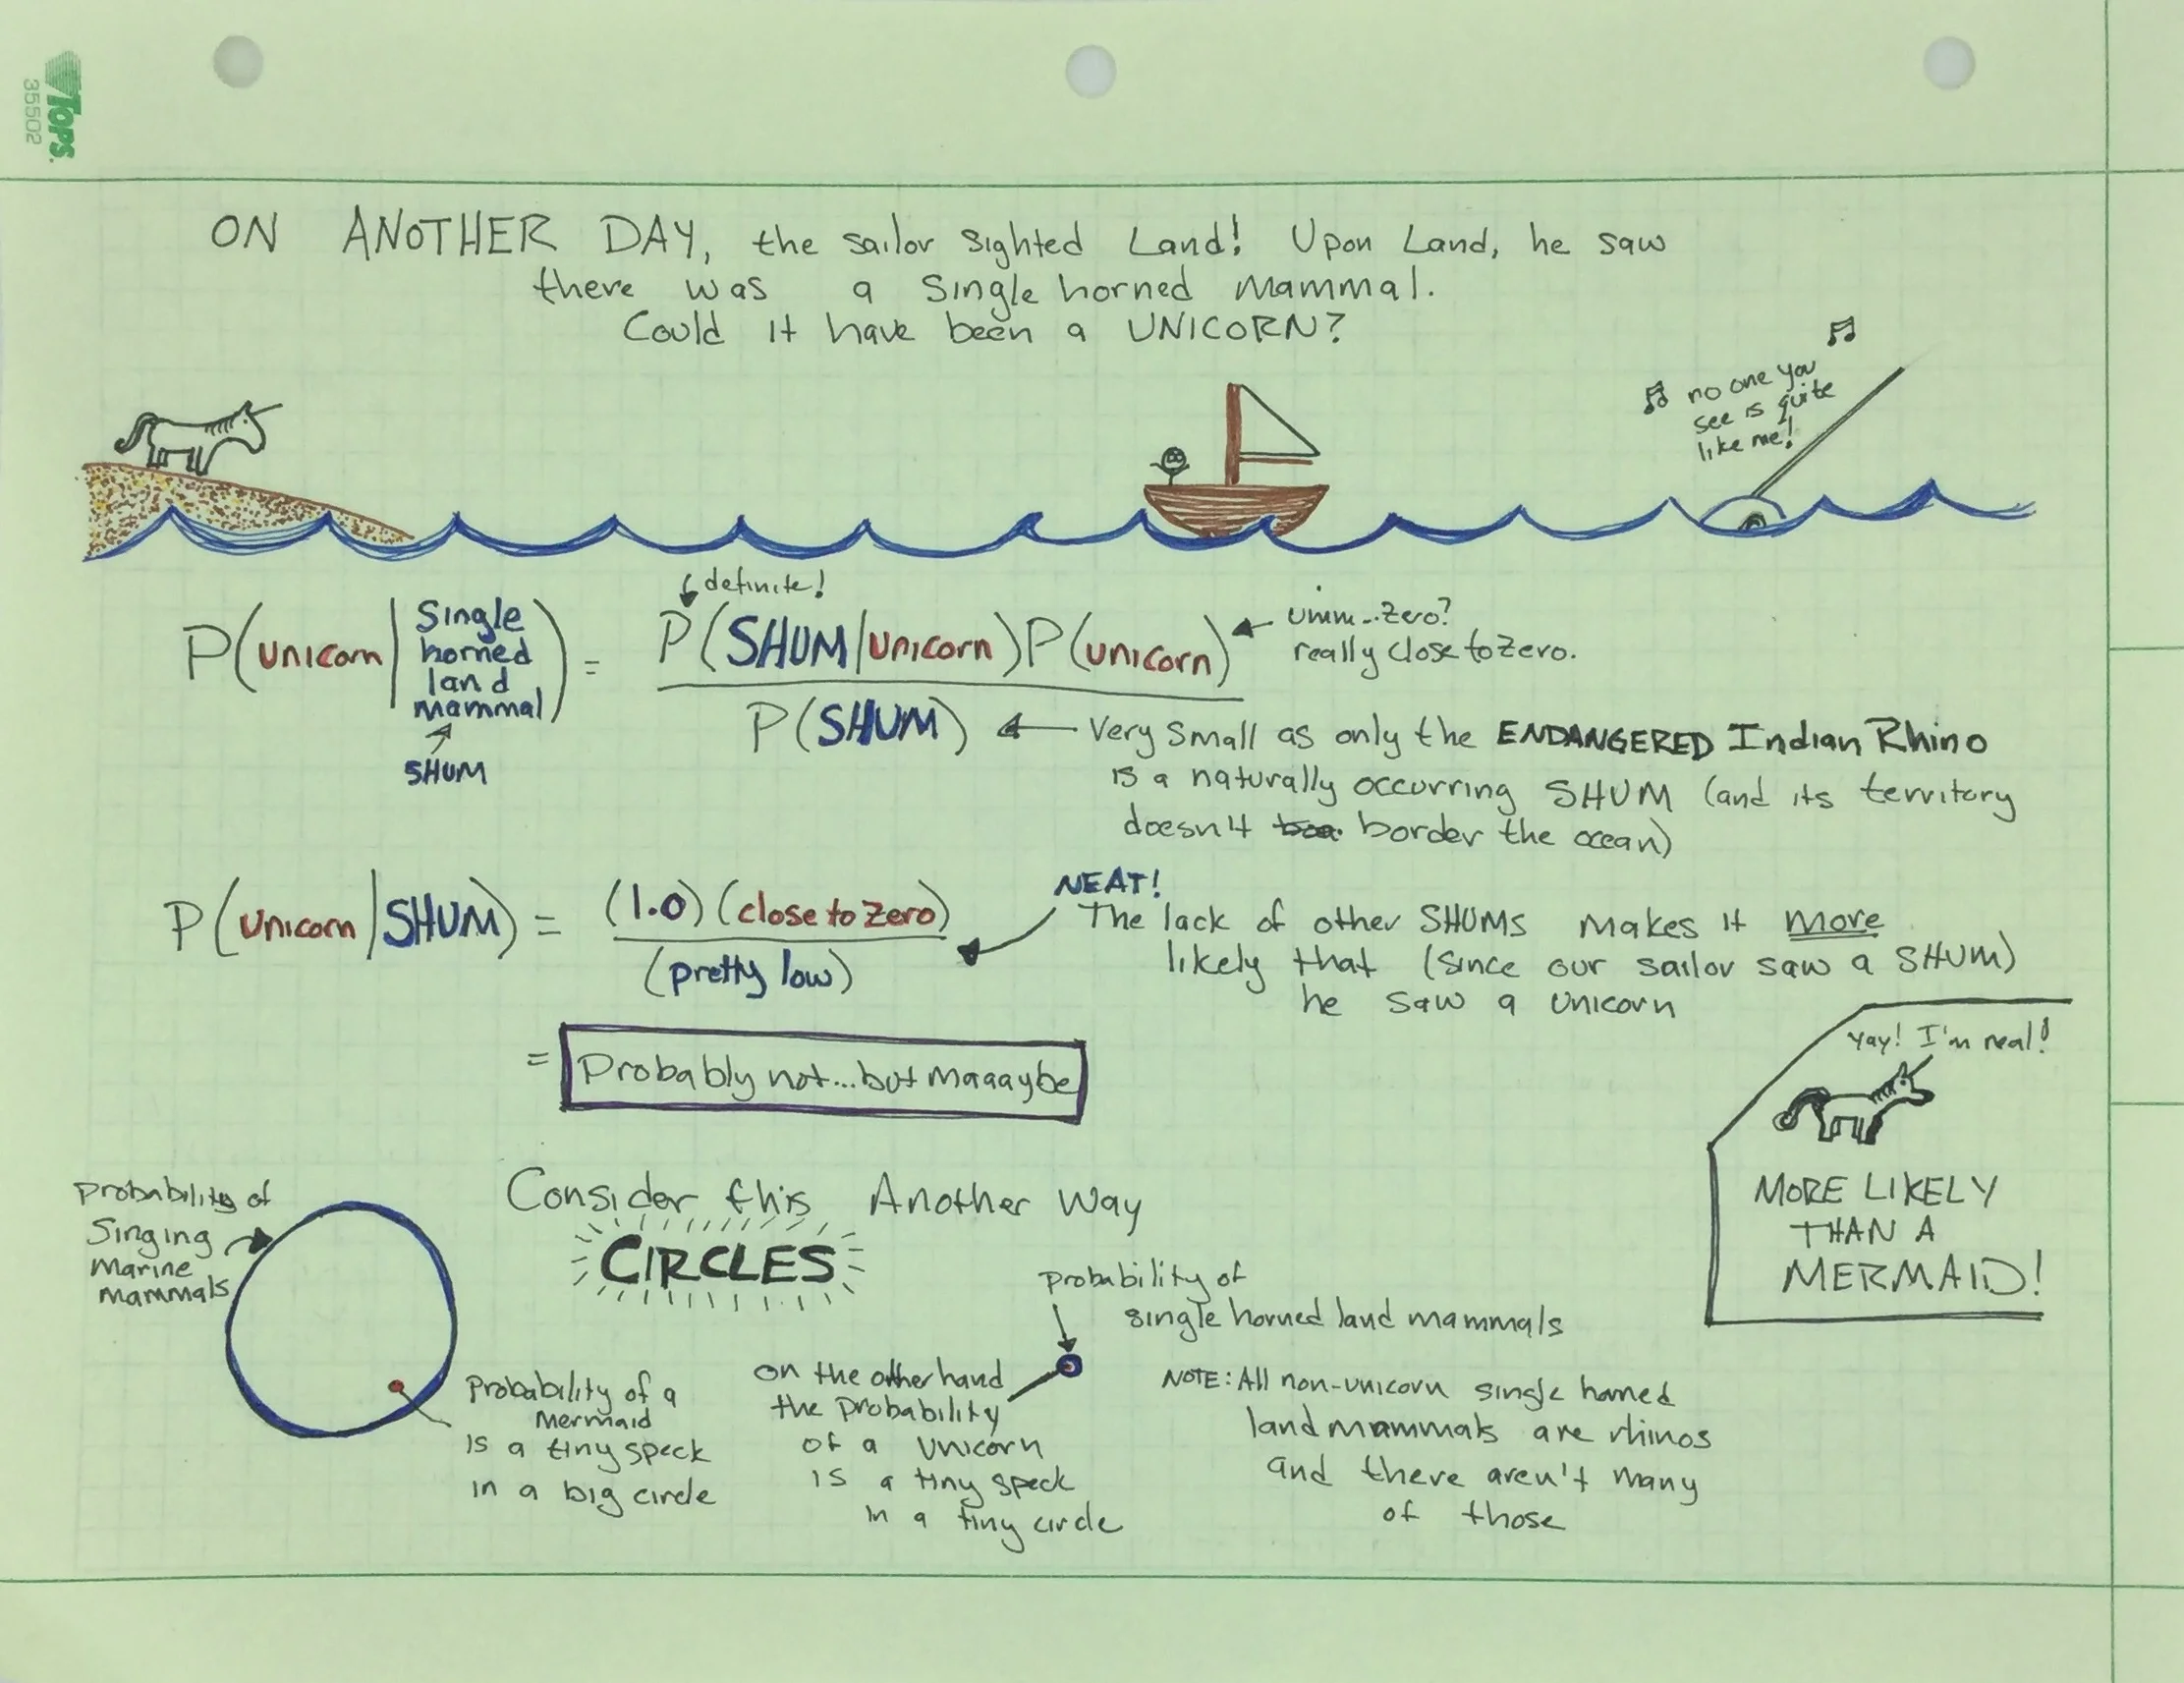 TOPS.
35502
ON ANOTHER DAY, the sailor sighted Land! Upon Land, he saw
there was a single horned mammal.
Could it have been a UNICORN?
no one you
see is quite
like me!
definite!
P(unicorn | Single horned land mammal) = P(SHUM|unicorn)P(unicorn)
P(SHUM)
SHUM
umm...zero?
really close to zero.
Very small as only the ENDANGERED Indian Rhino
is a naturally occurring SHUM (and its territory
doesn't border the ocean)
P(unicorn|SHUM) = (1.0)(close to zero)
(pretty low)
NEAT!
The lack of other SHUMS makes it more
likely that (since our sailor saw a SHUM)
he saw a unicorn
= Probably not...but maaaybe
Yay! I'm real!
MORE LIKELY
THAN A
MERMAID!
Consider this Another Way
CIRCLES
Probability of
Singing
Marine
Mammals
Probability of a
Mermaid
is a tiny speck
in a big circle
probability of
single horned land mammals
on the other hand
the probability
of a unicorn
is a tiny speck
in a tiny circle
NOTE: All non-unicorn single horned
land mammals are rhinos
and there aren't many
of those